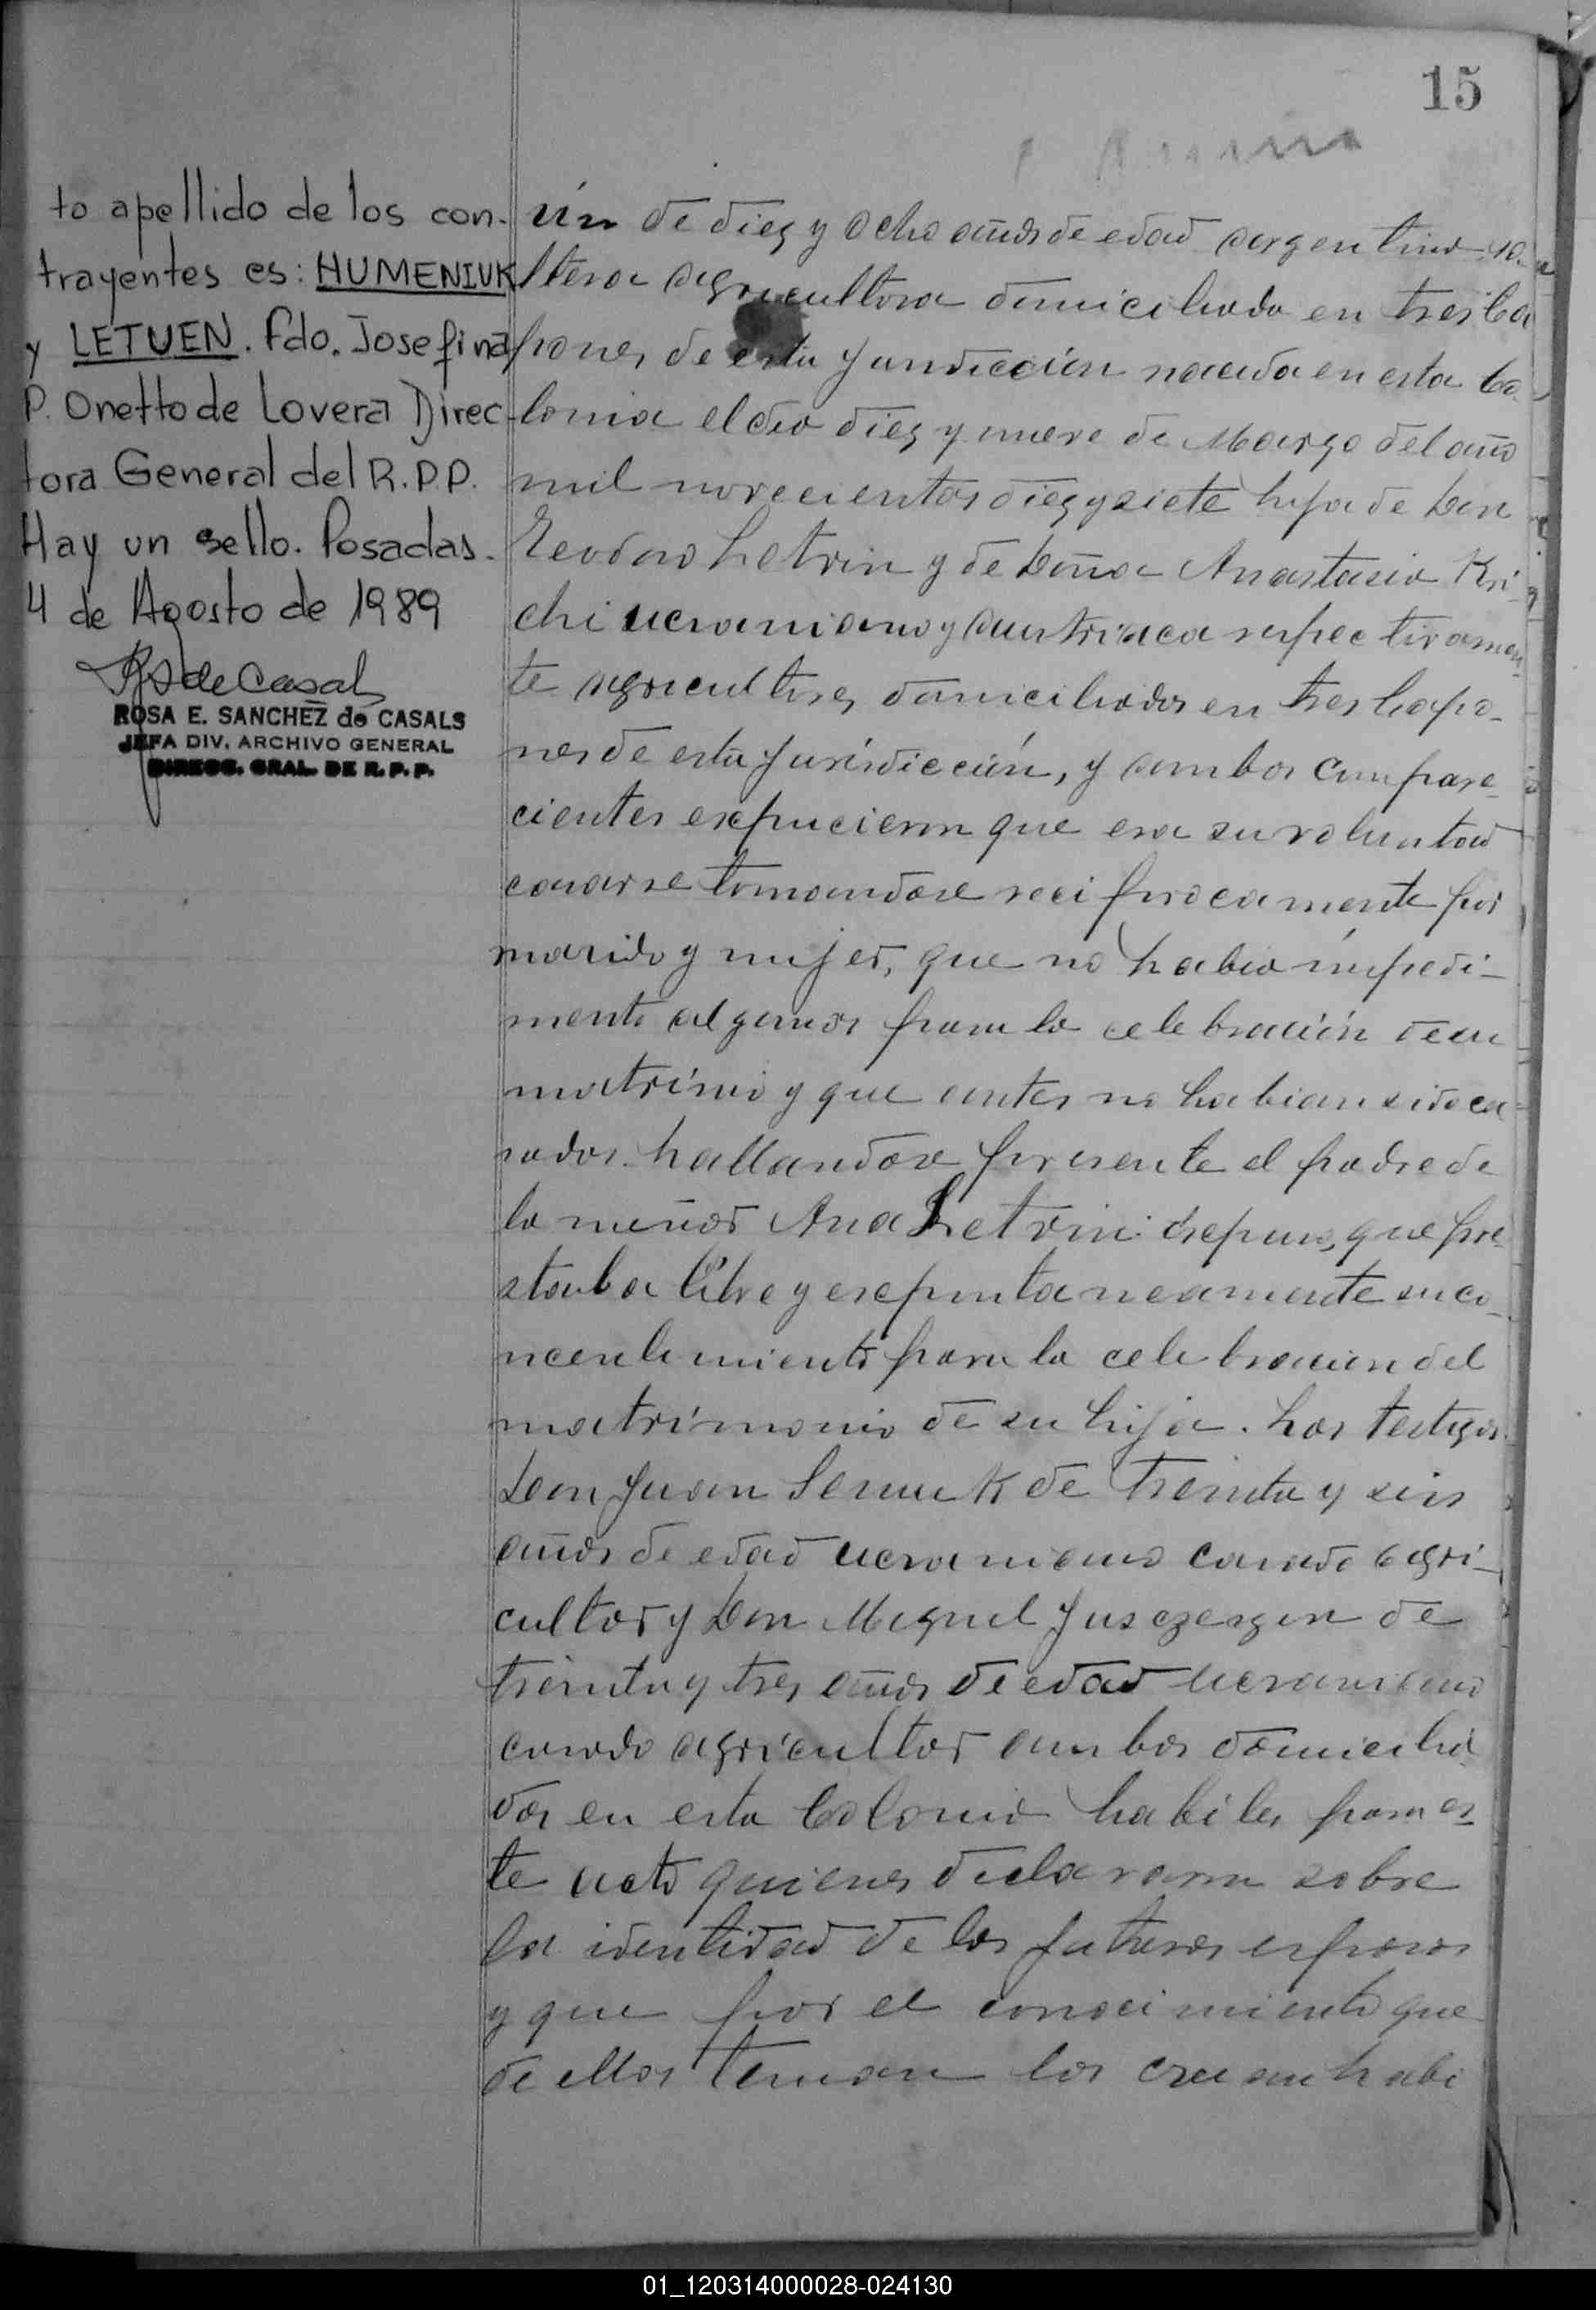 15
to apellido de los con-
trayentes es: HUMENIUK
y LETUEN. Fdo. Josefina
P. Onetto de Lovera Direc-
tora General del R.P.P.
Hay un sello. Posadas.
4 de Agosto de 1989
RS de Casals
ROSA E. SANCHEZ de CASALS
JEFA DIV. ARCHIVO GENERAL
DIRECC. GRAL. DE R. P. P.
rín de diez y ocho años de edad argentina so-
ltera agricultora domiciliada en tres Ca
pones de esta Juridicción nacida en esta Co-
lonia el dia diez y nueve de Marzo del año
mil novecientos diez y siete hija de Don
Teodoro Letrin y de Doña Anastasia Kri-
chi ucraniano y austriaca respectivamen-
te agricultores domiciliados en tres Capo-
nes de esta Jurisdicción, y ambos compare-
cientes expucieron que era su voluntad
casarse tomandose reciprocamente por
marido y mujer, que no habia impedi-
mento algunos para la celebración de su
matrimio y que antes no habian sido ca-
sados. hallandose presente el padre de
la menor Ana Letrin: expuso, que pre-
staba libre y expontaneamente su co-
ncentimiento para la celebracion del
matrimonio de su hija. Los testigos
Don Juan Semuk de treinta y seis
años de edad ucraniano casado agri-
cultor y Don Miguel Juszezszen de
treinta y tres años de edad ucraniano
casado agricultor ambos domicilia-
dos en esta Colonia habiles para es-
te acto quienes declararon sobre
la identidad de los futuros esposos
y que por el conocimiento que
de ellos tenian los creian habi
01_120314000028-024130